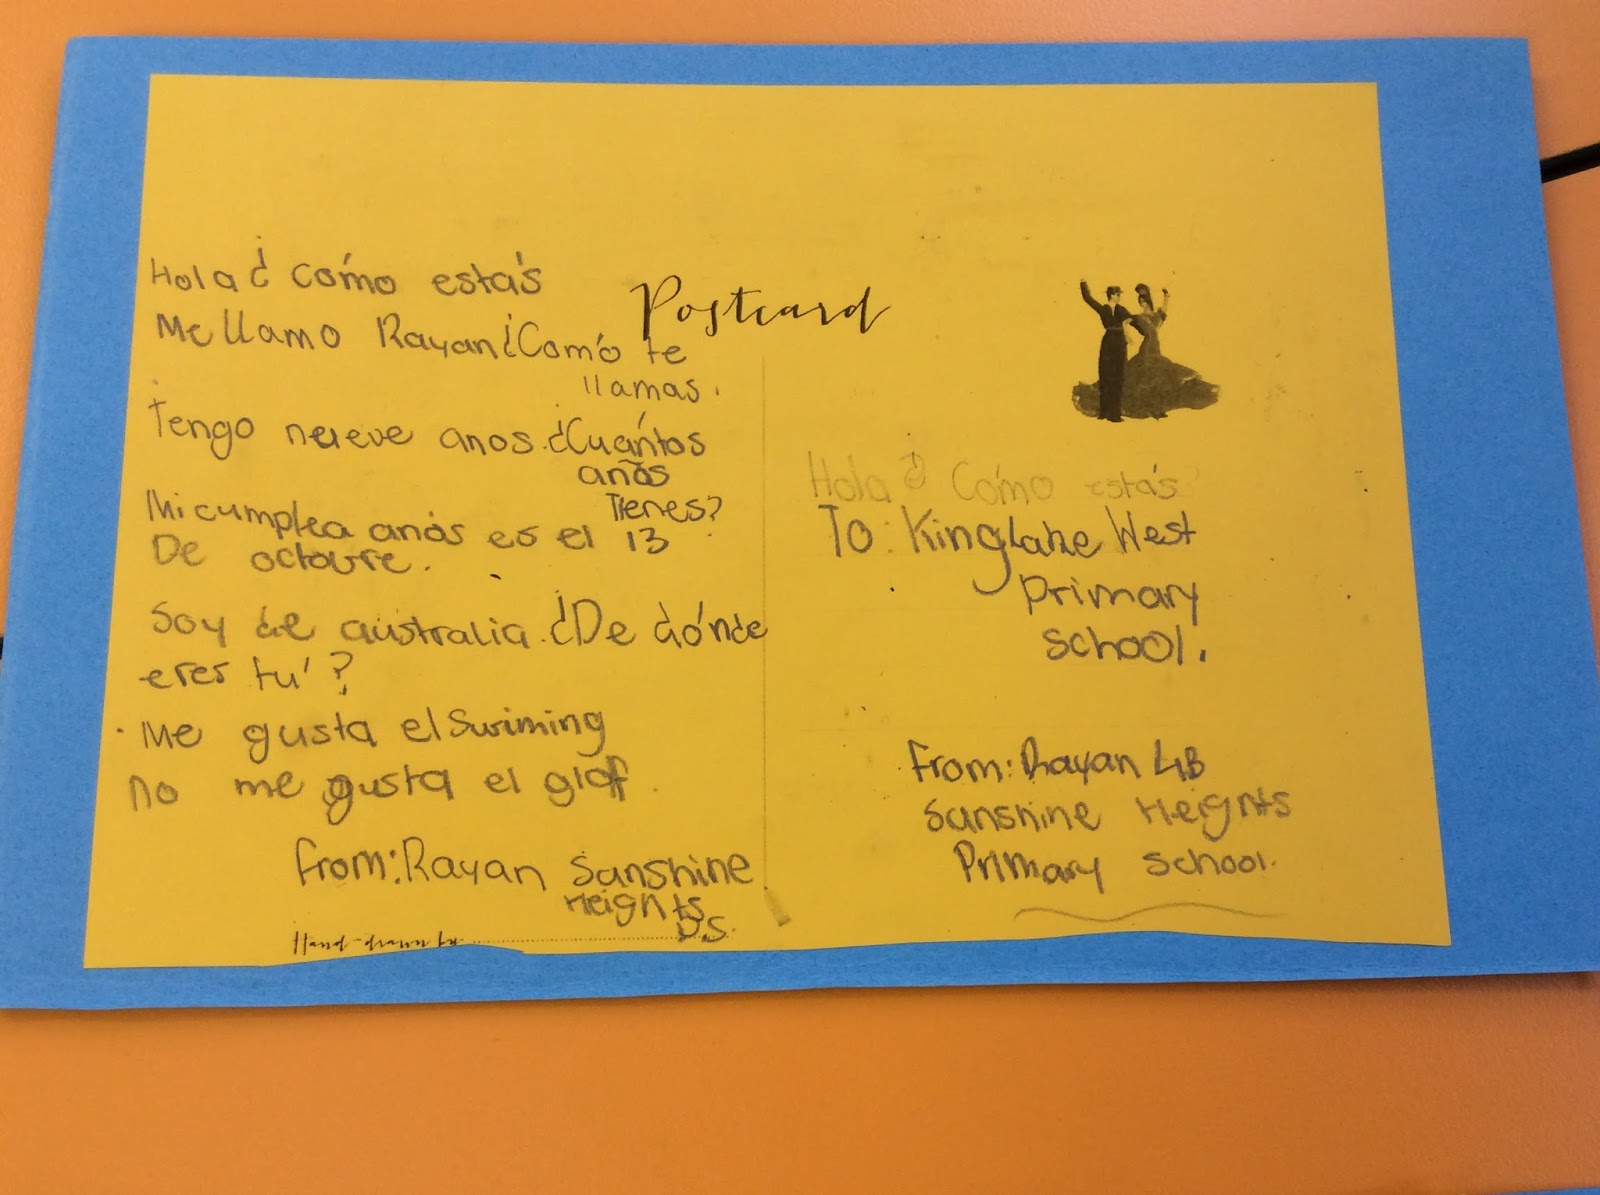 Postcard
Hola ¿ como estás
Me llamo Rayan ¿Comó te
llamas.
Tengo neieve anos. ¿Cuántos
años
Tienes?
Mi cumplea anos es el 13
De octovre.
Soy de australia. ¿De dónde
eres tú?
Me gusta el Swiming
no me gusta el glof.
From: Rayan Sanshine
Heights
P.S.
Hand-drawn by
Hola ¿ Como estás
To: Kinglake West
Primary
School.
From: Rayan 4B
Sanshine Heights
Primary School.